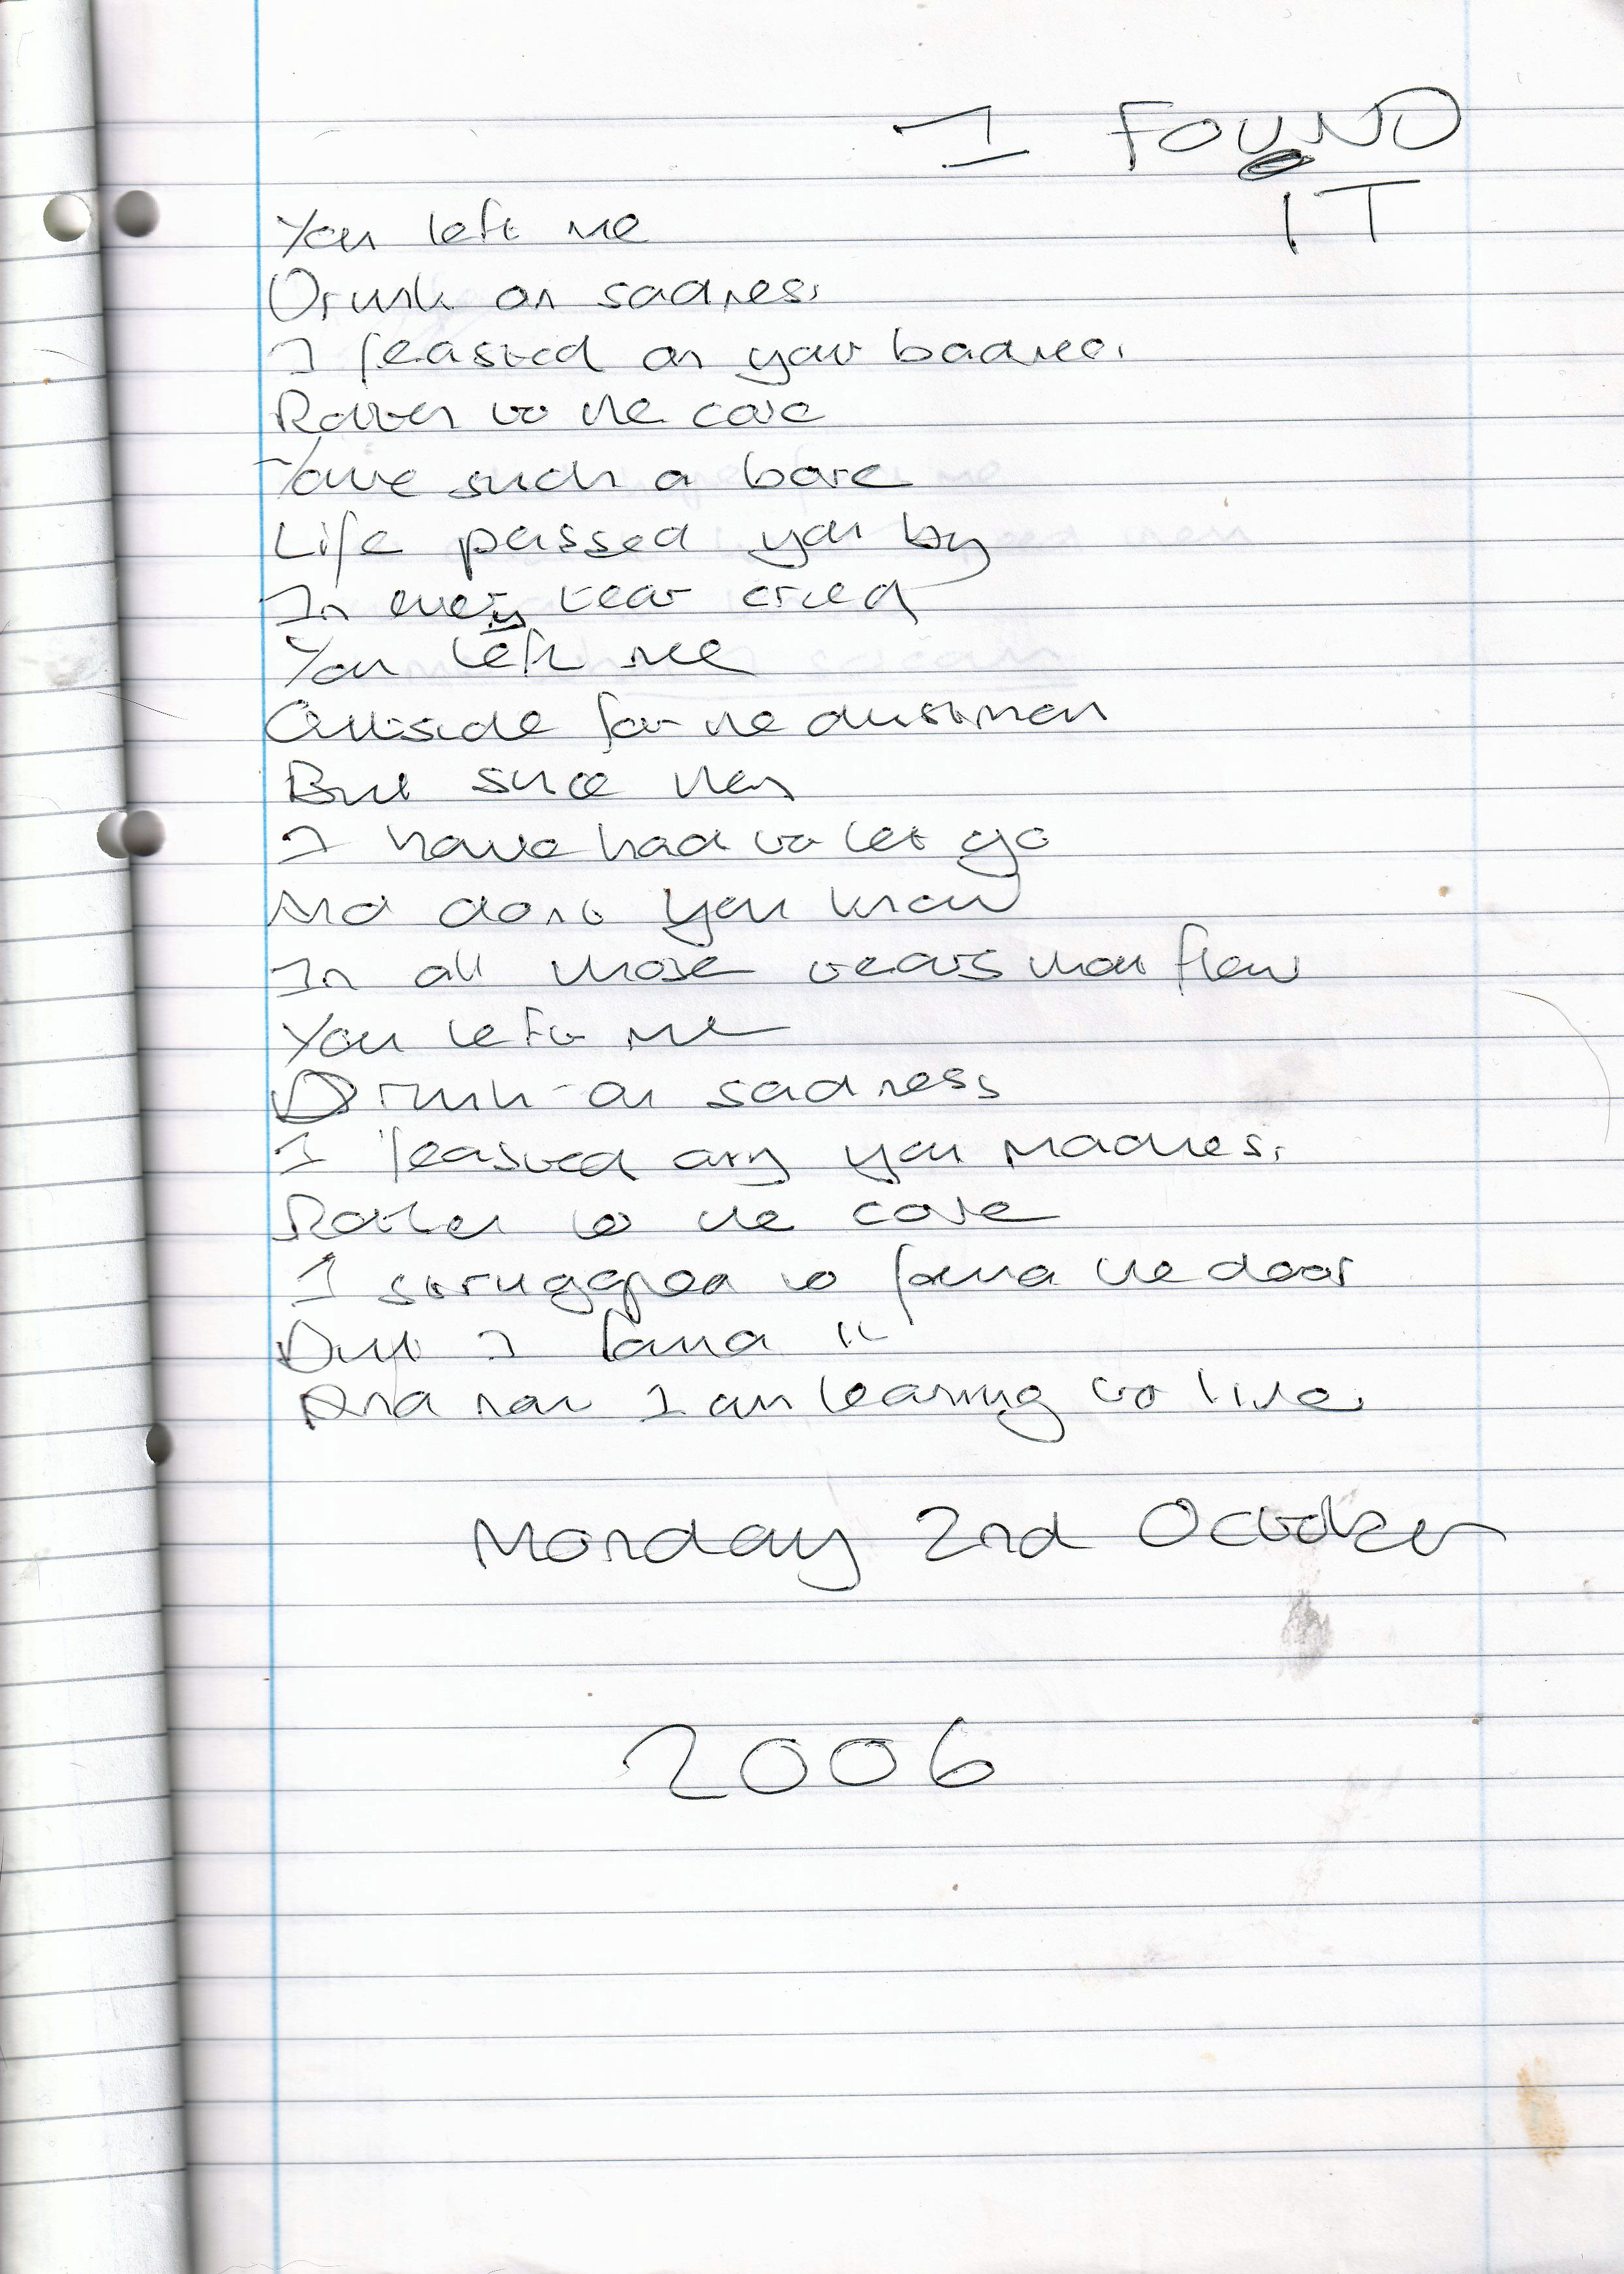 I FOUND
IT
You left me
Drunk on sadness
I feasted on your badness
Rotten to the core
Your such a bore
Life passed you by
In every tear cried
You left me
Outside for the dustmen
But since then
I have had to let go
And dont you know
In all those tears that flow
You left me
Drunk on sadness
I feasted on you madness
Rotten to the core
I struggled to found the door
But I found it
And now I am learning to live.
Monday 2nd October
2006